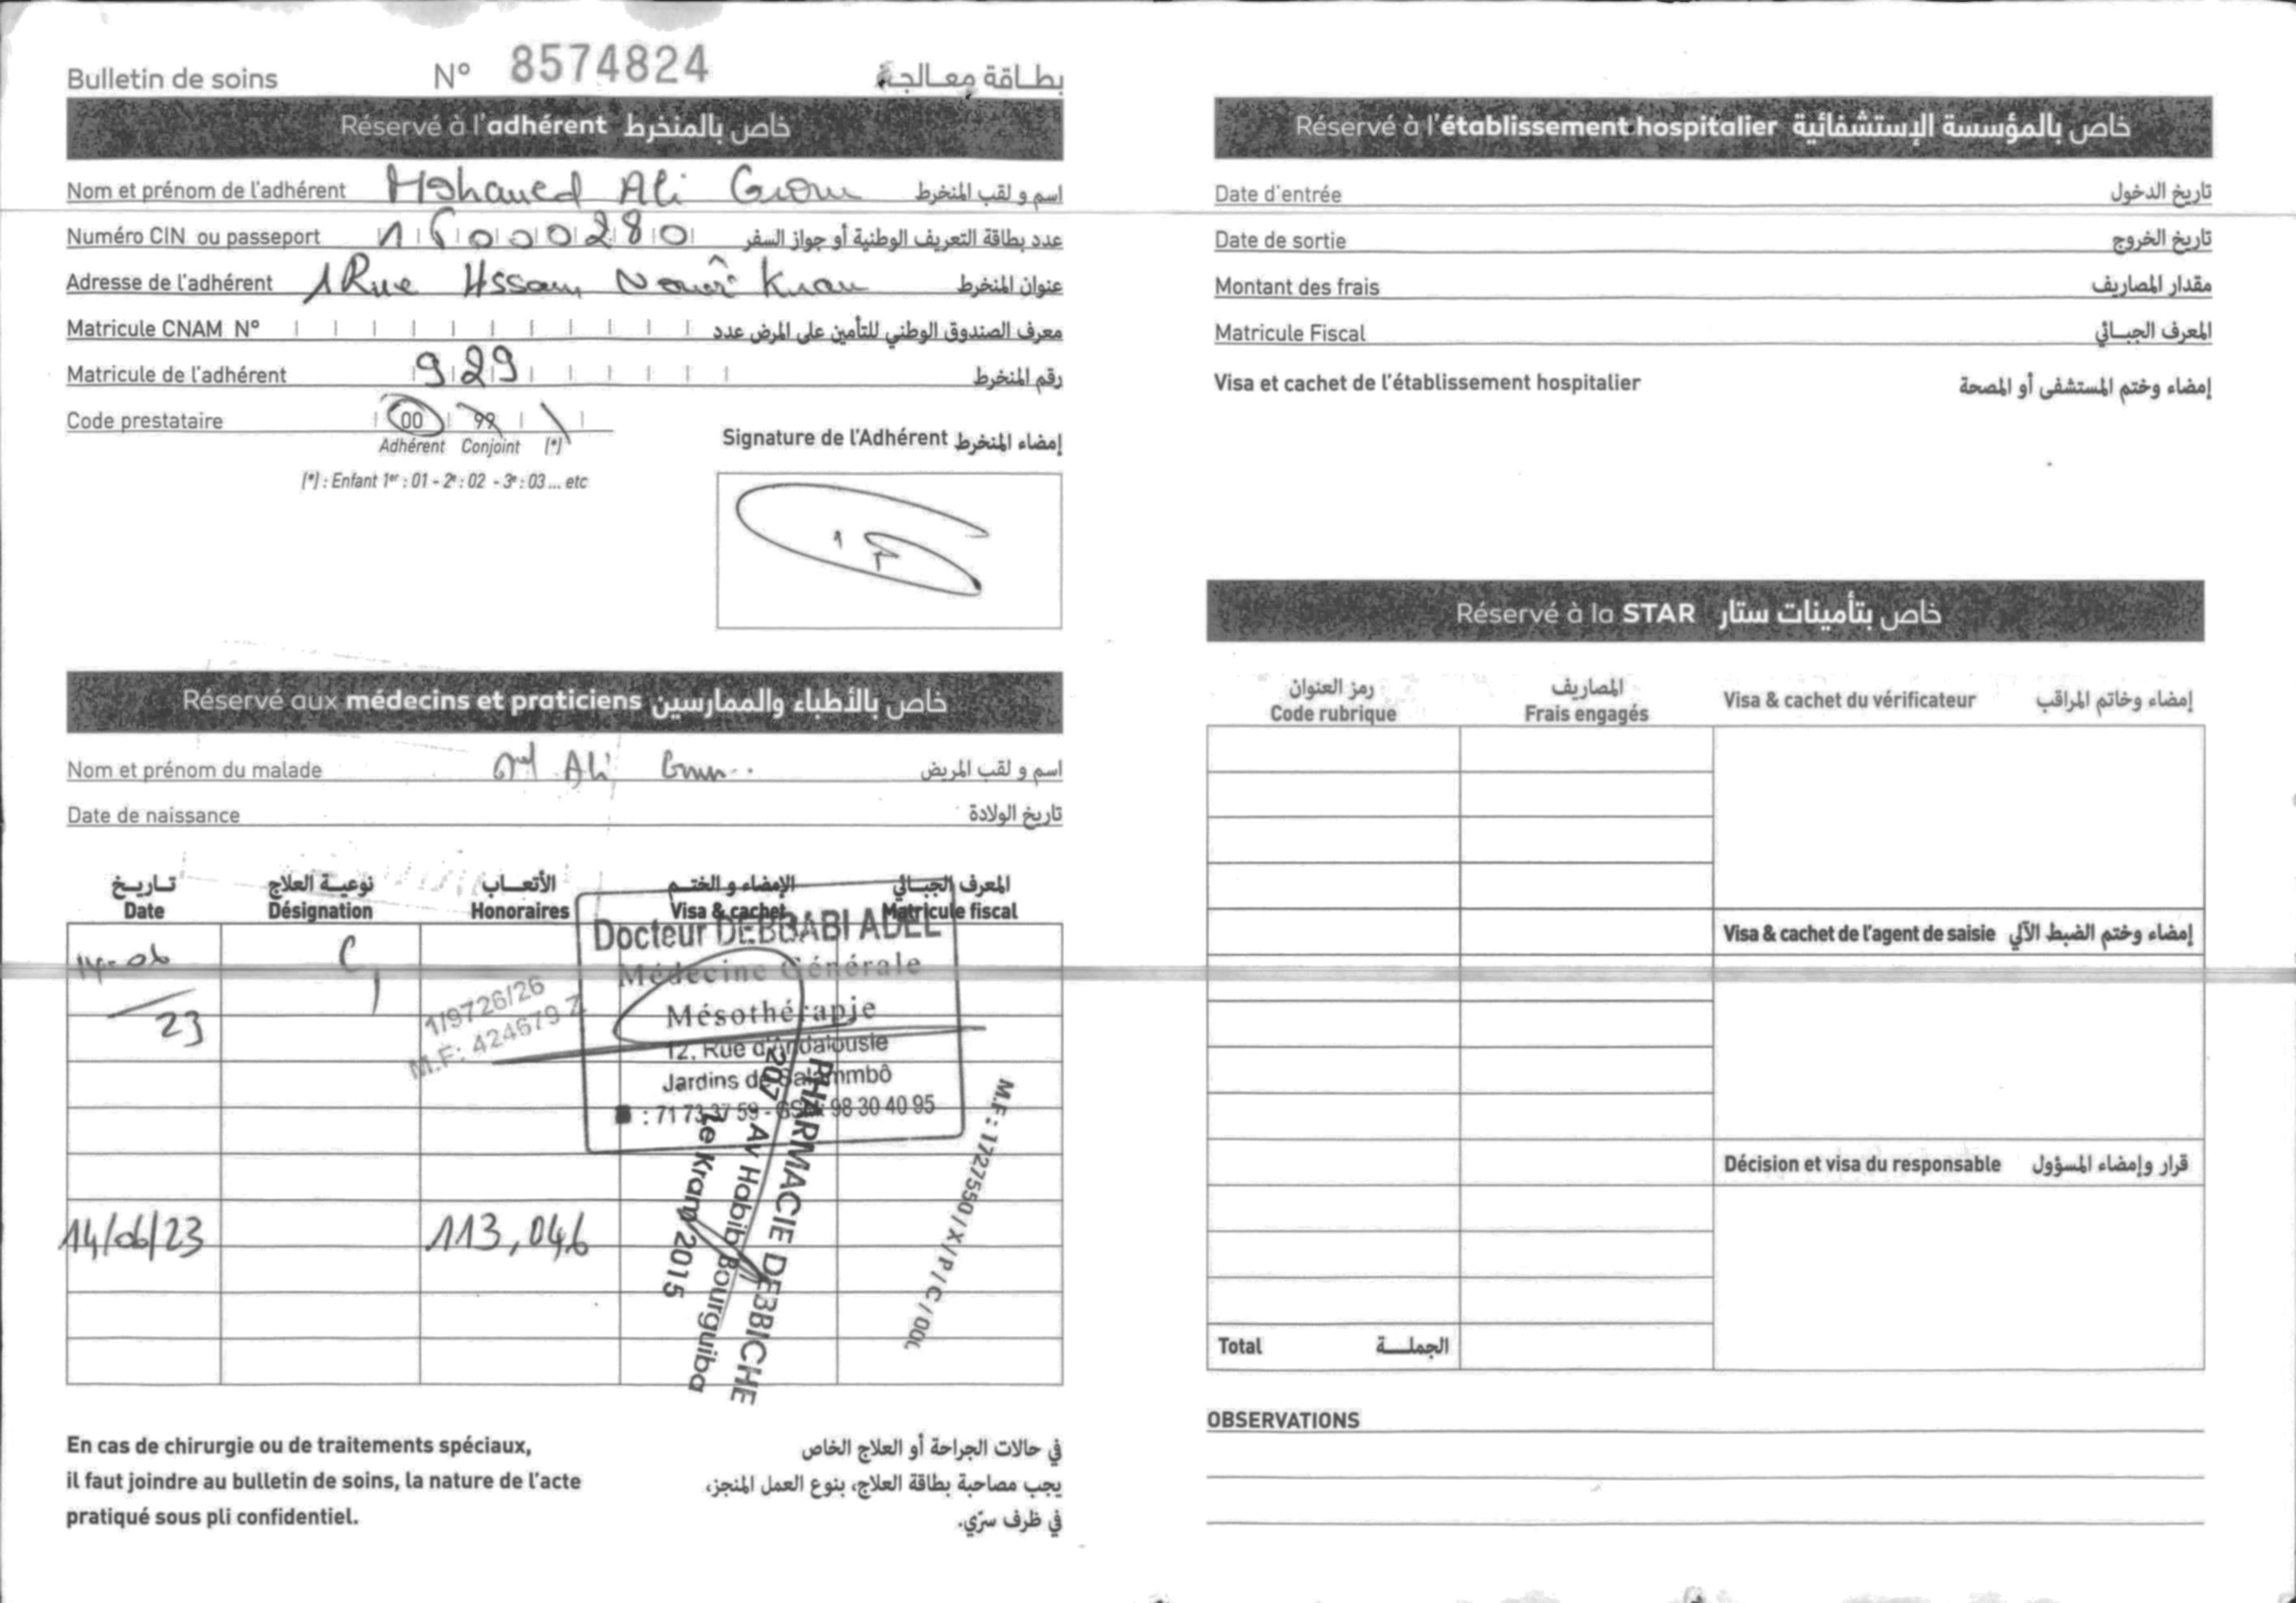 Bulletin de soins N° 8574824 بطاقة معالجة
Réservé à l'adhérent خاص بالمنخرط
Nom et prénom de l'adhérent Mohamed Ali اسم و لقب المنخرط
Numéro CIN ou passeport عدد بطاقة التعريف الوطنية أو جواز السفر
Adresse de l'adhérent 1 Rue عنوان المنخرط
Matricule CNAM N° معرف الصندوق الوطني للتأمين على المرض عدد
Matricule de l'adhérent 929 رقم المنخرط
Code prestataire 00 99
Adhérent Conjoint (*)
(*) : Enfant 1er : 01 - 2e : 02 - 3e : 03 ... etc
Signature de l'Adhérent إمضاء المنخرط
Réservé aux médecins et praticiens خاص بالأطباء والممارسين
Nom et prénom du malade Ali اسم و لقب المريض
Date de naissance تاريخ الولادة
تـاريـخ نوعيـة العلاج الأتعـاب الإمضاء و الختـم المعرف الجبـائي
Date Désignation Honoraires Visa & cachet Matricule fiscal
14-06
23
1/9726/26
M.F: 424679 Z
Docteur DEBBABI ADEL
Médecine Générale
Mésothérapie
12, Rue d'Andalousie
Jardins de Salammbô
: 71 73 37 59 - GSM : 98 30 40 95
14/06/23 113,046
PHARMACIE DEBBICHE
207 Av Habib Bourguiba
Le Kram 2015
M.F : 1727550/X/P/C/000
En cas de chirurgie ou de traitements spéciaux,
il faut joindre au bulletin de soins, la nature de l'acte
pratiqué sous pli confidentiel.
في حالات الجراحة أو العلاج الخاص
يجب مصاحبة بطاقة العلاج، بنوع العمل المنجز،
في ظرف سرّي.
Réservé à l'établissement hospitalier خاص بالمؤسسة الإستشفائية
Date d'entrée تاريخ الدخول
Date de sortie تاريخ الخروج
Montant des frais مقدار المصاريف
Matricule Fiscal المعرف الجبـائي
Visa et cachet de l'établissement hospitalier إمضاء وختم المستشفى أو المصحة
Réservé à la STAR خاص بتأمينات ستار
رمز العنوان المصاريف
Code rubrique Frais engagés Visa & cachet du vérificateur إمضاء وخاتم المراقب
Visa & cachet de l'agent de saisie إمضاء وختم الضبط الآلي
Décision et visa du responsable قرار وإمضاء المسؤول
Total الجملـــة
OBSERVATIONS